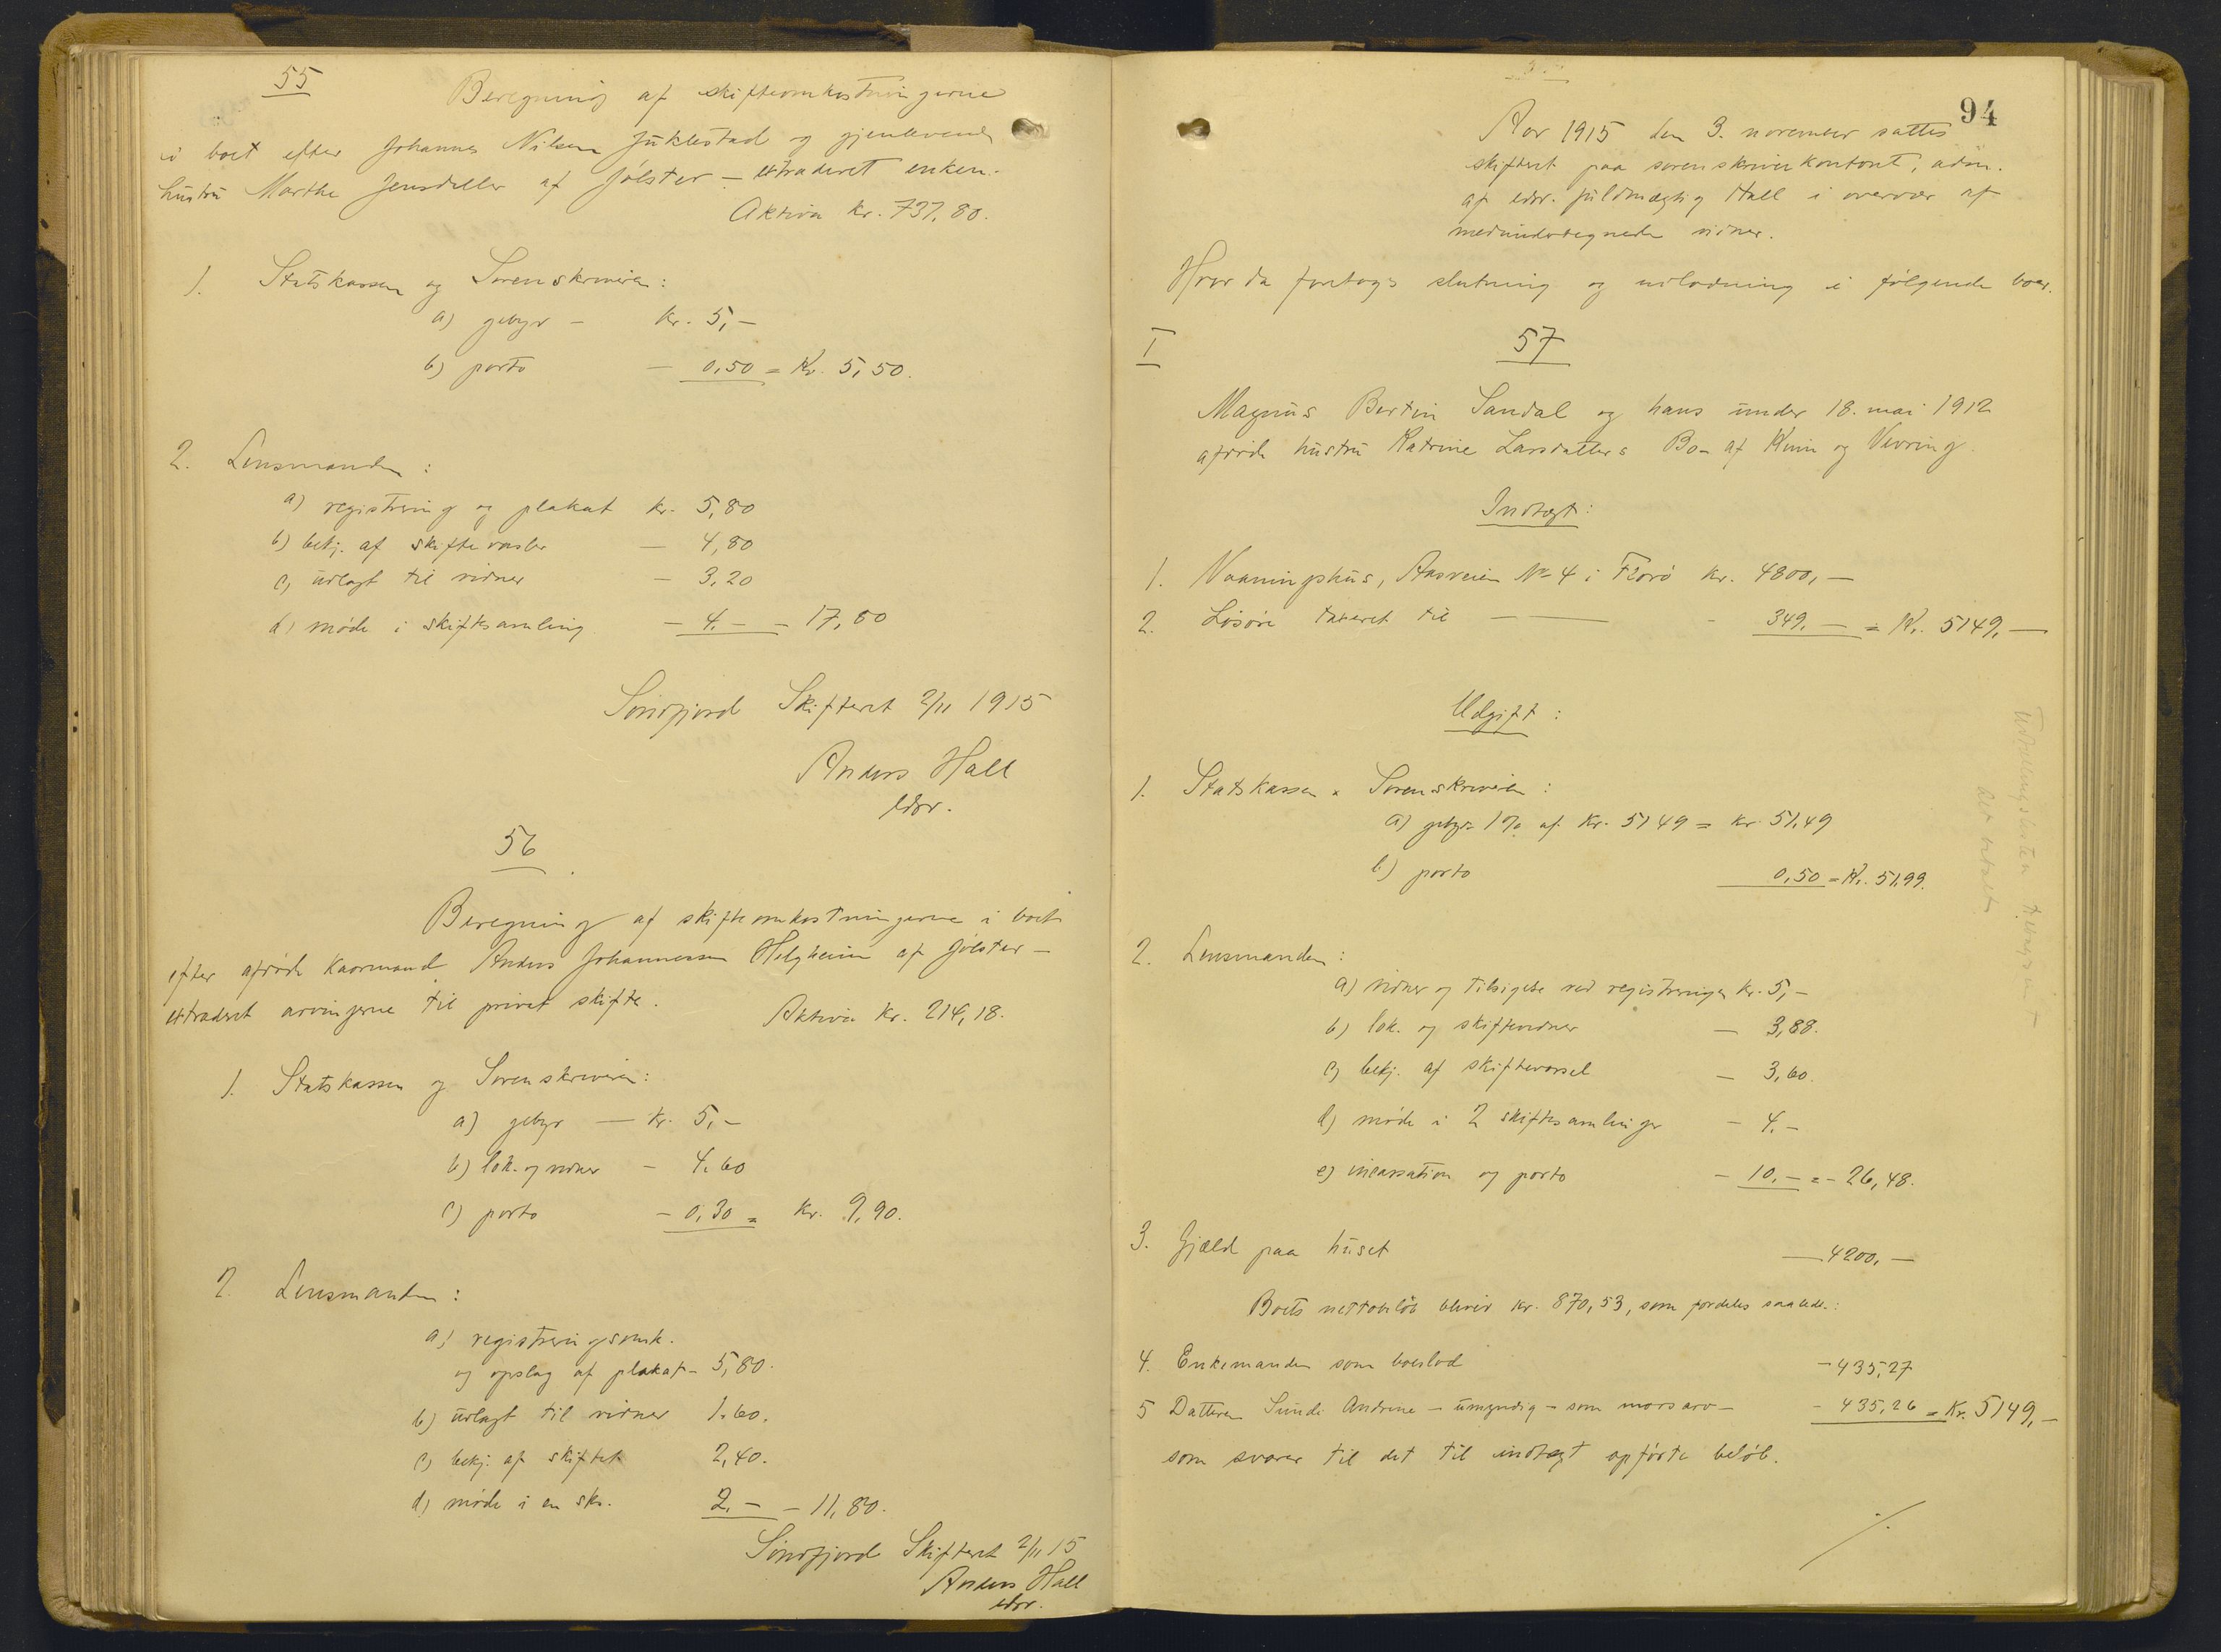 55
Beregning af skifteomkostningerne
i boet efter Johannes Nilsen Juklestad og gjenlevende
hustru Marthe Jensdatter af Jølster – extraderet enken.
Aktiva kr. 737,80.
1. Statskassen og Sorenskriveren:
a) gebyr – kr. 5,–
b) porto – 0,50 = Kr. 5,50.
2. Lensmanden:
a) registrering og plakat kr. 5,80
b) bekj. af skiftevarsler – 4,80
c) utlagt til vidner – 3,20
d) møde i skiftesamling – 4.– – 17,80
Søndfjord Skifteret 2/11 1915
Anders Hall
edsv.
56
Beregning af skifteomkostningerne i boet
efter afdøde kaarmand Anders Johannessen Helgheim af Jølster –
extraderet arvingerne til privat skifte.
Aktiva Kr. 214,18.
1. Statskassen og Sorenskriveren:
a) gebyr — kr. 5,–
b) lok. og vidner – 4.60
c) porto – 0,30 = kr. 9,90.
2. Lensmanden:
a) registreringsomk.
og opslag af plakat – 5,80.
b) utlagt til vidner 1.60.
c) bekj. af skiftet 2,40.
d) møde i en sks. 2.– – 11,80.
Søndfjord Skifteret 2/11 15
Anders Hall
edsv.
94
Aar 1915 den 3. november sattes
skifteret paa sorenskriverkontoret, adm.
af edsv. fuldmægtig Hall i overvær af
medundertegnede vidner.
Hvor da foretoges slutning og utlodning i følgende boer.
I
57
Magnus Bertin Sandal og hans under 18. mai 1912
afdøde hustru Katrine Larsdatters Bo – af Kinn og Vevring.
Indtægt:
1. Vaaningshus, Aasveien No 4 i Florø kr. 4800,—
2. Løsøre taxeret til — — - 349.— = Kr. 5149,—
Udgift:
1. Statskassen & Sorenskriveren:
a) gebyr 1% af Kr. 5149 = kr. 51,49
b) porto 0,50 = Kr. 51,99.
2. Lensmanden:
a) vidner og tilsigelse ved registreringen kr. 5,–
b) lok. og skiftevidner — 3,88.
c) bekj. af skiftevarsel — 3,60.
d) møde i 2 skiftesamlinger – 4.–
e) incassation og porto – 10.– = – 26,48.
3. Gjæld paa huset — 4200,—
Boets nettobeløb bliver kr. 870,53, som fordeles saaledes:
4. Enkemanden som boeslod – 435,27
5 Datteren Andrine – umyndig – som morsarv – – 435,26 = Kr. 5149,–
som svarer til det til indtægt opførte beløb.
./.